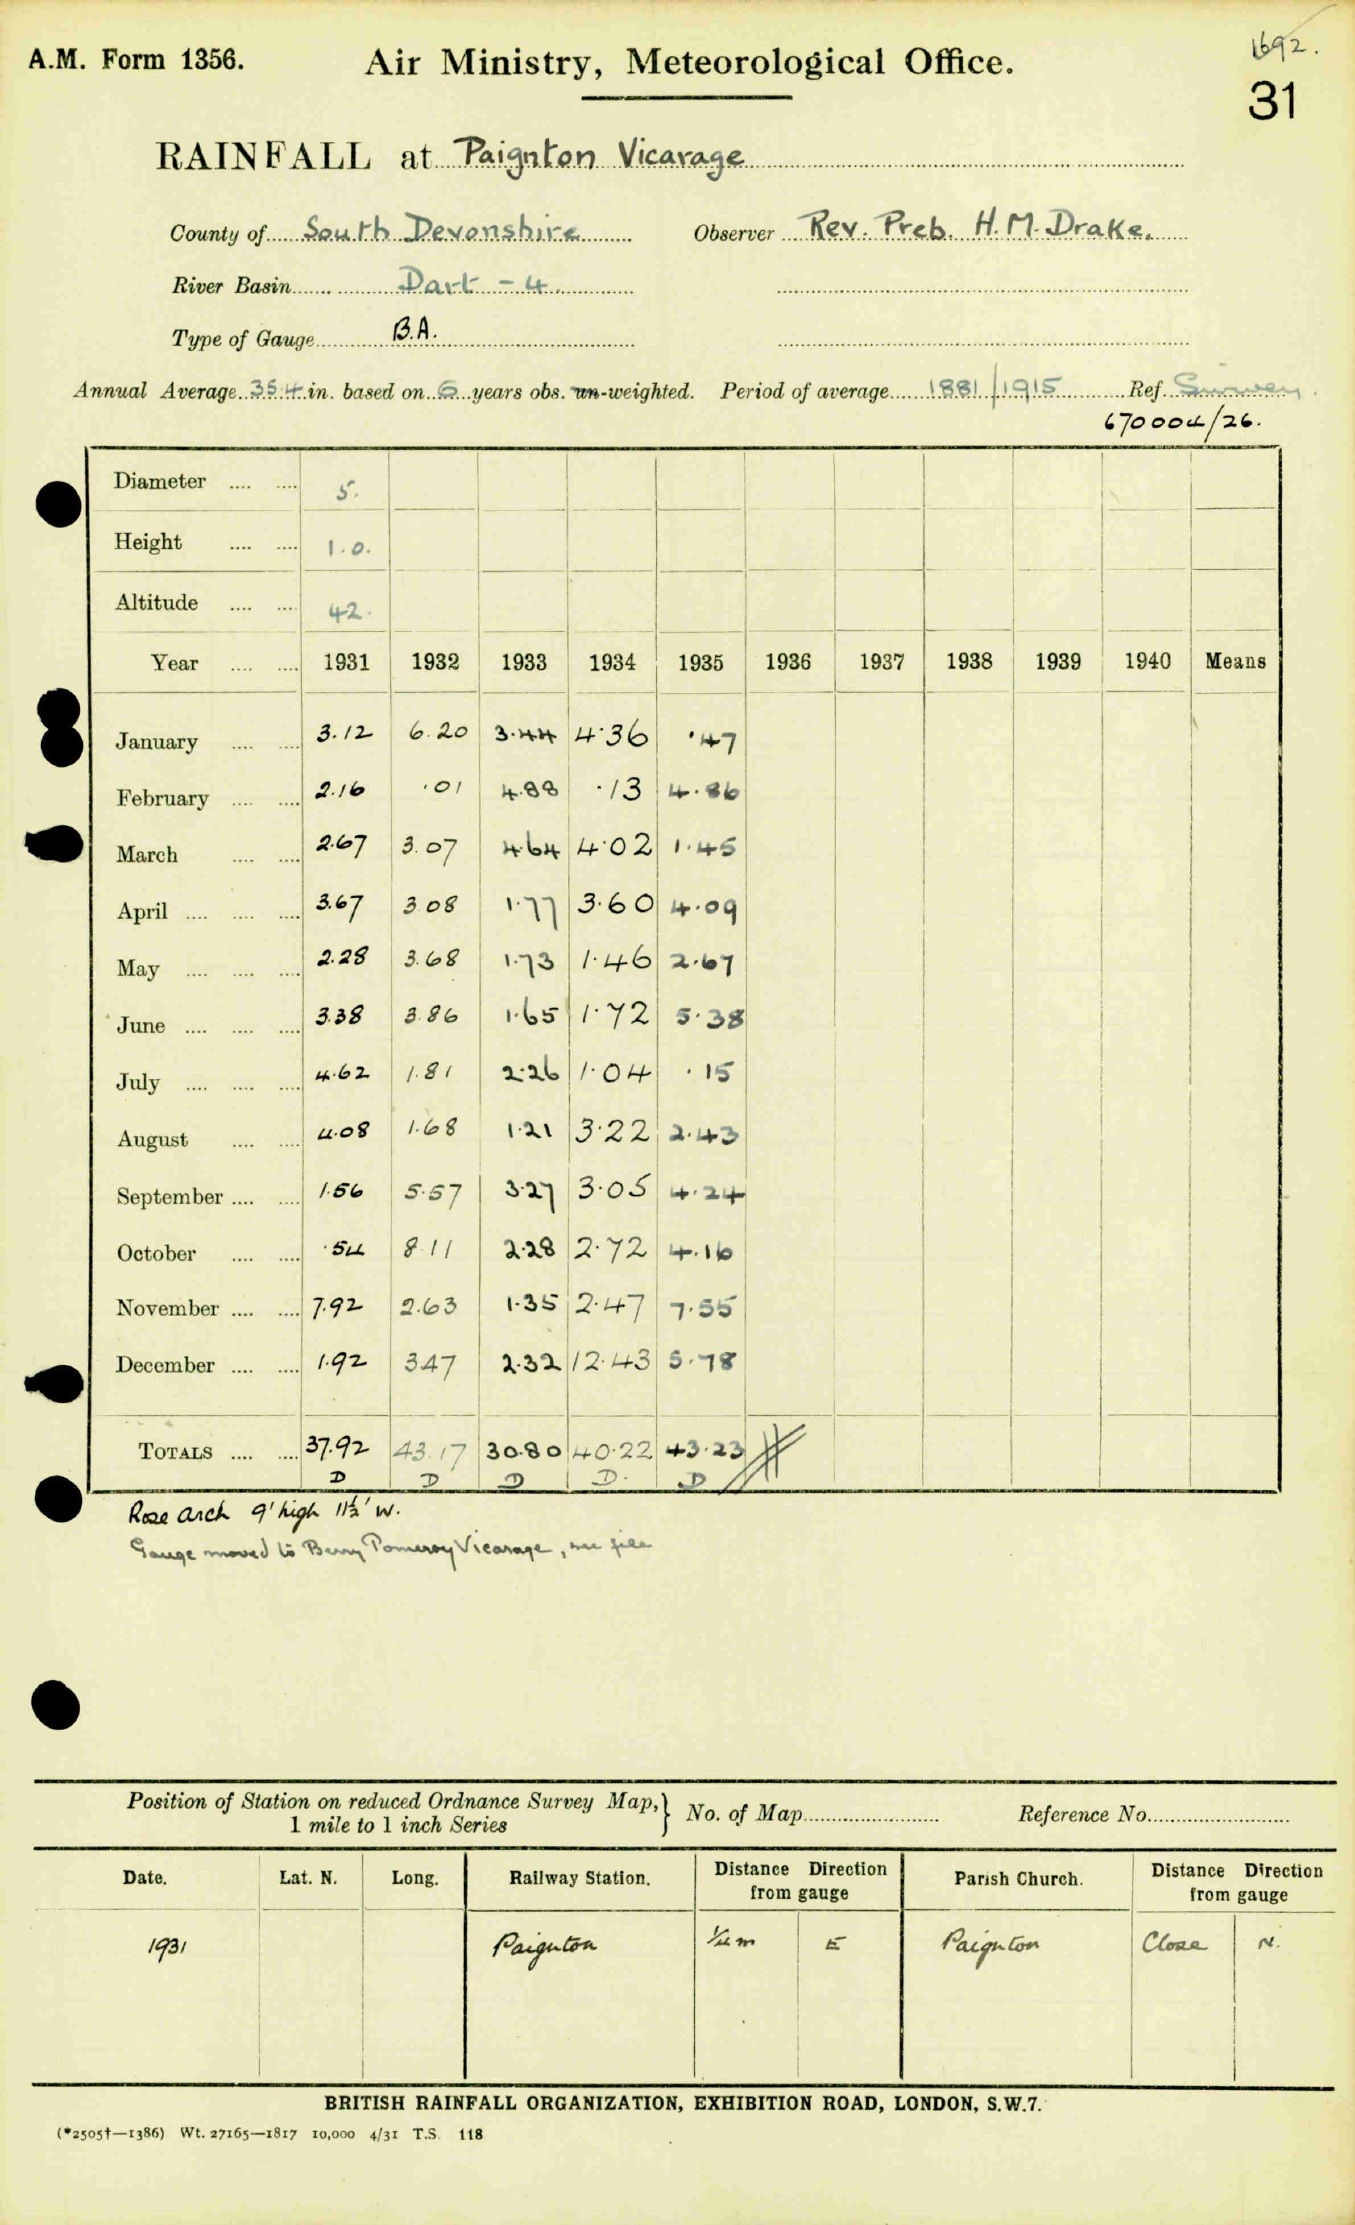 1692.
A.M. Form 1356. Air Ministry, Meteorological Office.
31
RAINFALL at Paignton Vicarage
County of South Devonshire Observer Rev. Preb. H.M. Drake.
River Basin Dart - 4.
Type of Gauge B.A.
Annual Average 35.4 in. based on 6 years obs. un-weighted. Period of average 1881/1915 Ref. Survey
670004/26.
Diameter .... .... 5.
Height .... .... 1.0.
Altitude .... .... 42.
Year .... .... 1931 1932 1933 1934 1935 1936 1937 1938 1939 1940 Means
January .... .... 3.12 6.20 3.44 4.36 .47
February .... .... 2.16 .01 4.88 .13 4.86
March .... .... 2.67 3.07 4.64 4.02 1.45
April .... .... .... 3.67 3.08 1.77 3.60 4.09
May .... .... .... 2.28 3.68 1.73 1.46 2.67
June .... .... .... 3.38 3.86 1.65 1.72 5.38
July .... .... .... 4.62 1.81 2.26 1.04 .15
August .... .... 4.08 1.68 1.21 3.22 2.43
September .... .... 1.56 5.57 3.27 3.05 4.24
October .... .... .54 8.11 2.28 2.72 4.16
November .... .... 7.92 2.63 1.35 2.47 7.55
December .... .... 1.92 3.47 2.32 12.43 5.78
TOTALS .... .... 37.92 43.17 30.80 40.22 43.23
D D D D. D
Rose arch 9' high 11½' W.
Gauge moved to Berry Pomeroy Vicarage, see file
Position of Station on reduced Ordnance Survey Map, } No. of Map Reference No.
1 mile to 1 inch Series
Date. Lat. N. Long. Railway Station. Distance Direction from gauge Parish Church. Distance Direction from gauge
1931 Paignton ¼ m E Paignton Close N.
BRITISH RAINFALL ORGANIZATION, EXHIBITION ROAD, LONDON, S.W.7.
(*2505†—1386) Wt. 27165—1817 10,000 4/31 T.S. 118